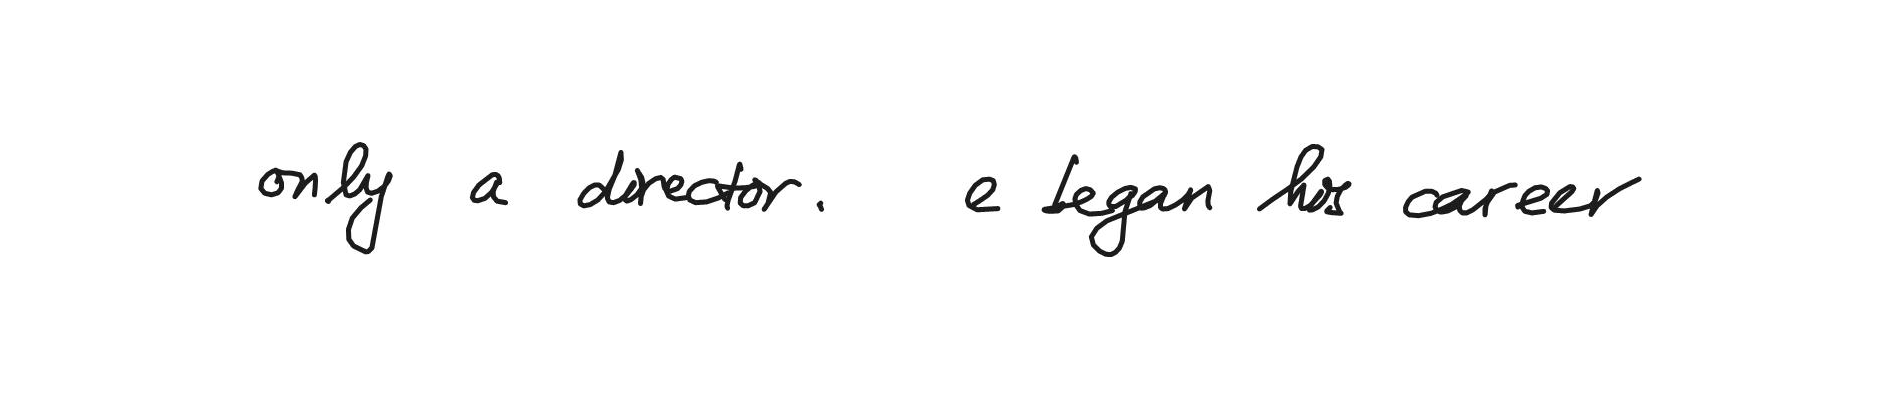 only a director. e began his career